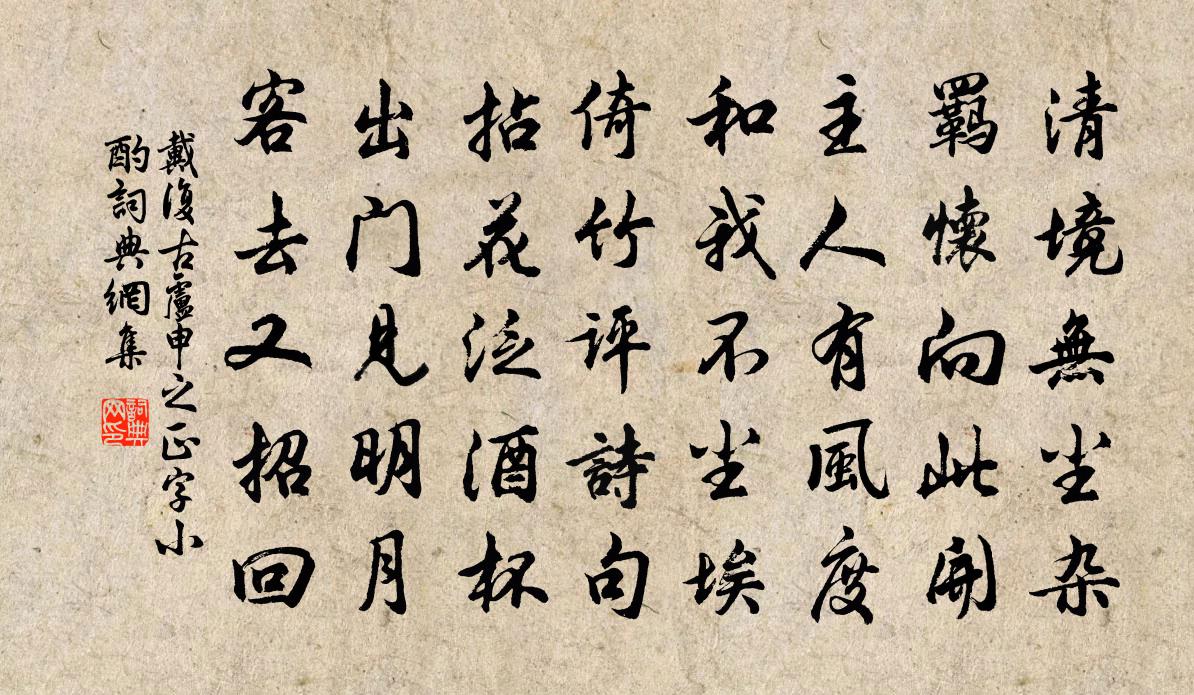 清境無尘杂
羈懷向此開
主人有風度
和我不尘埃
倚竹評詩句
拈花泛酒杯
出门見明月
客去又招回
戴復古盧申之正字小
酌詞典網集
詞典
网印